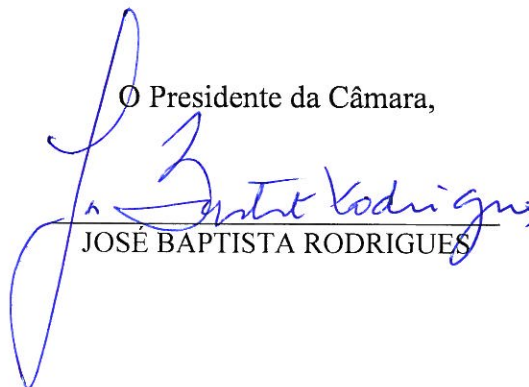 O Presidente da Câmara,
José Baptista Rodrigues
JOSÉ BAPTISTA RODRIGUES